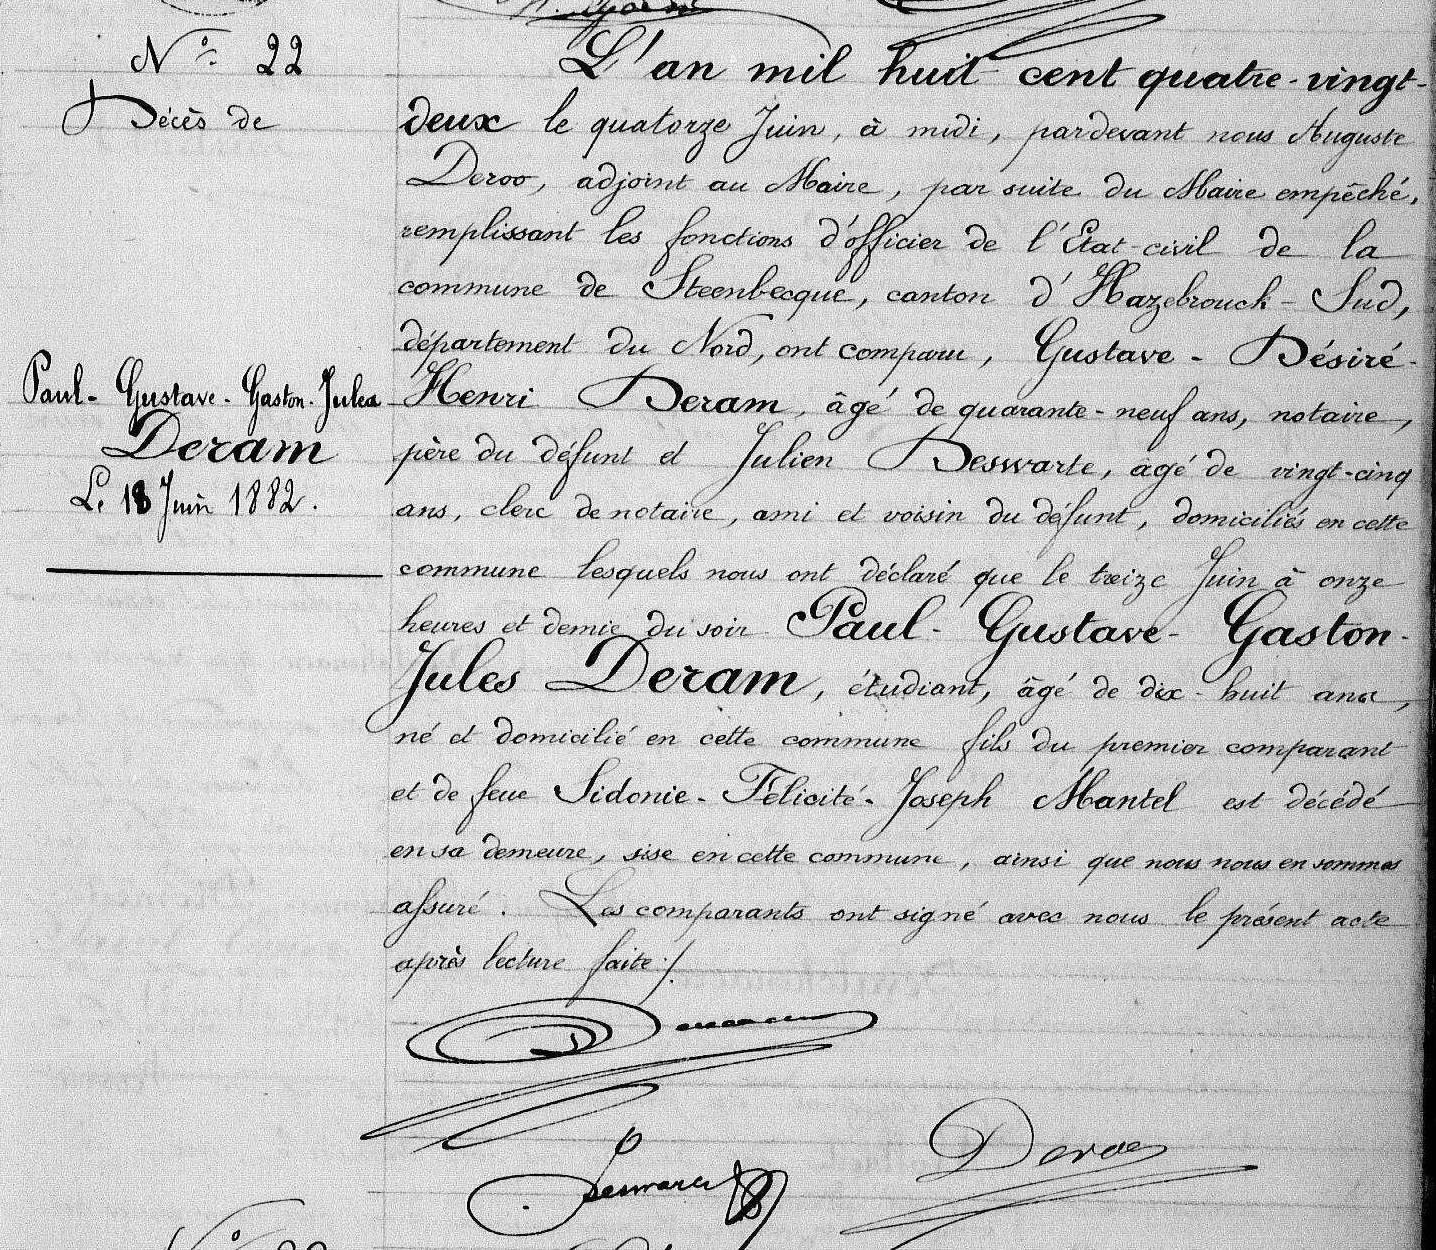 N° 22
Décès de
Paul-Gustave-Gaston-Jules
Deram
Le 13 Juin 1882.
L'an mil huit cent quatre-vingt-
deux le quatorze Juin, à midi, pardevant nous Auguste
Deroo, adjoint au Maire, par suite du Maire empêché,
remplissant les fonctions d'officier de l'État-civil de la
commune de Steenbecque, canton d'Hazebrouck-Sud,
département du Nord, ont comparu, Gustave-Désiré-
Henri Deram, âgé de quarante-neuf ans, notaire,
père du défunt et Julien Deswarte, âgé de vingt-cinq
ans, clerc de notaire, ami et voisin du défunt, domiciliés en cette
commune lesquels nous ont déclaré que le treize Juin à onze
heures et demie du soir Paul-Gustave-Gaston-
Jules Deram, étudiant, âgé de dix-huit ans,
né et domicilié en cette commune fils du premier comparant
et de feue Sidonie-Félicité-Joseph Mantel est décédé
en sa demeure, sise en cette commune, ainsi que nous nous en sommes
assuré. Les comparants ont signé avec nous le présent acte
après lecture faite ./.
Deram
Deswarte
Deroo
N°